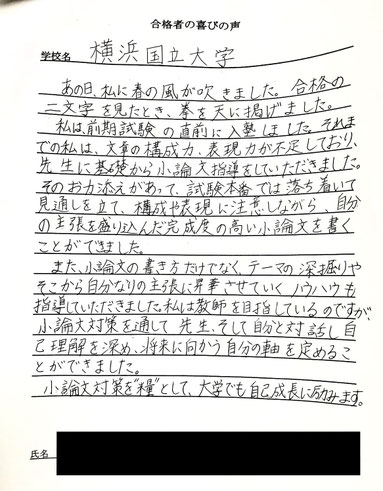 合格者の喜びの声
学校名 横浜国立大学
あの日、私に春の風が吹きました。合格の
二文字を見たとき、拳を天に掲げました。
私は、前期試験の直前に入塾しました。それま
での私は、文章の構成力、表現力が不足しており、
先生に基礎から小論文指導をしていただきました。
そのお力添えがあって、試験本番では落ち着いて
見通しを立て、構成や表現に注意しながら、自分
の主張を盛り込んだ完成度の高い小論文を書く
ことができました。
また、小論文の書き方だけでなく、テーマの深掘りや
そこから自分なりの主張に昇華させていくノウハウも
指導していただきました。私は教師を目指しているのですが、
小論文対策を通して先生、そして自分と対話し自
己理解を深め、将来に向かう自分の軸を定めるこ
とができました。
小論文対策を"糧"として、大学でも自己成長に励みます。
氏名